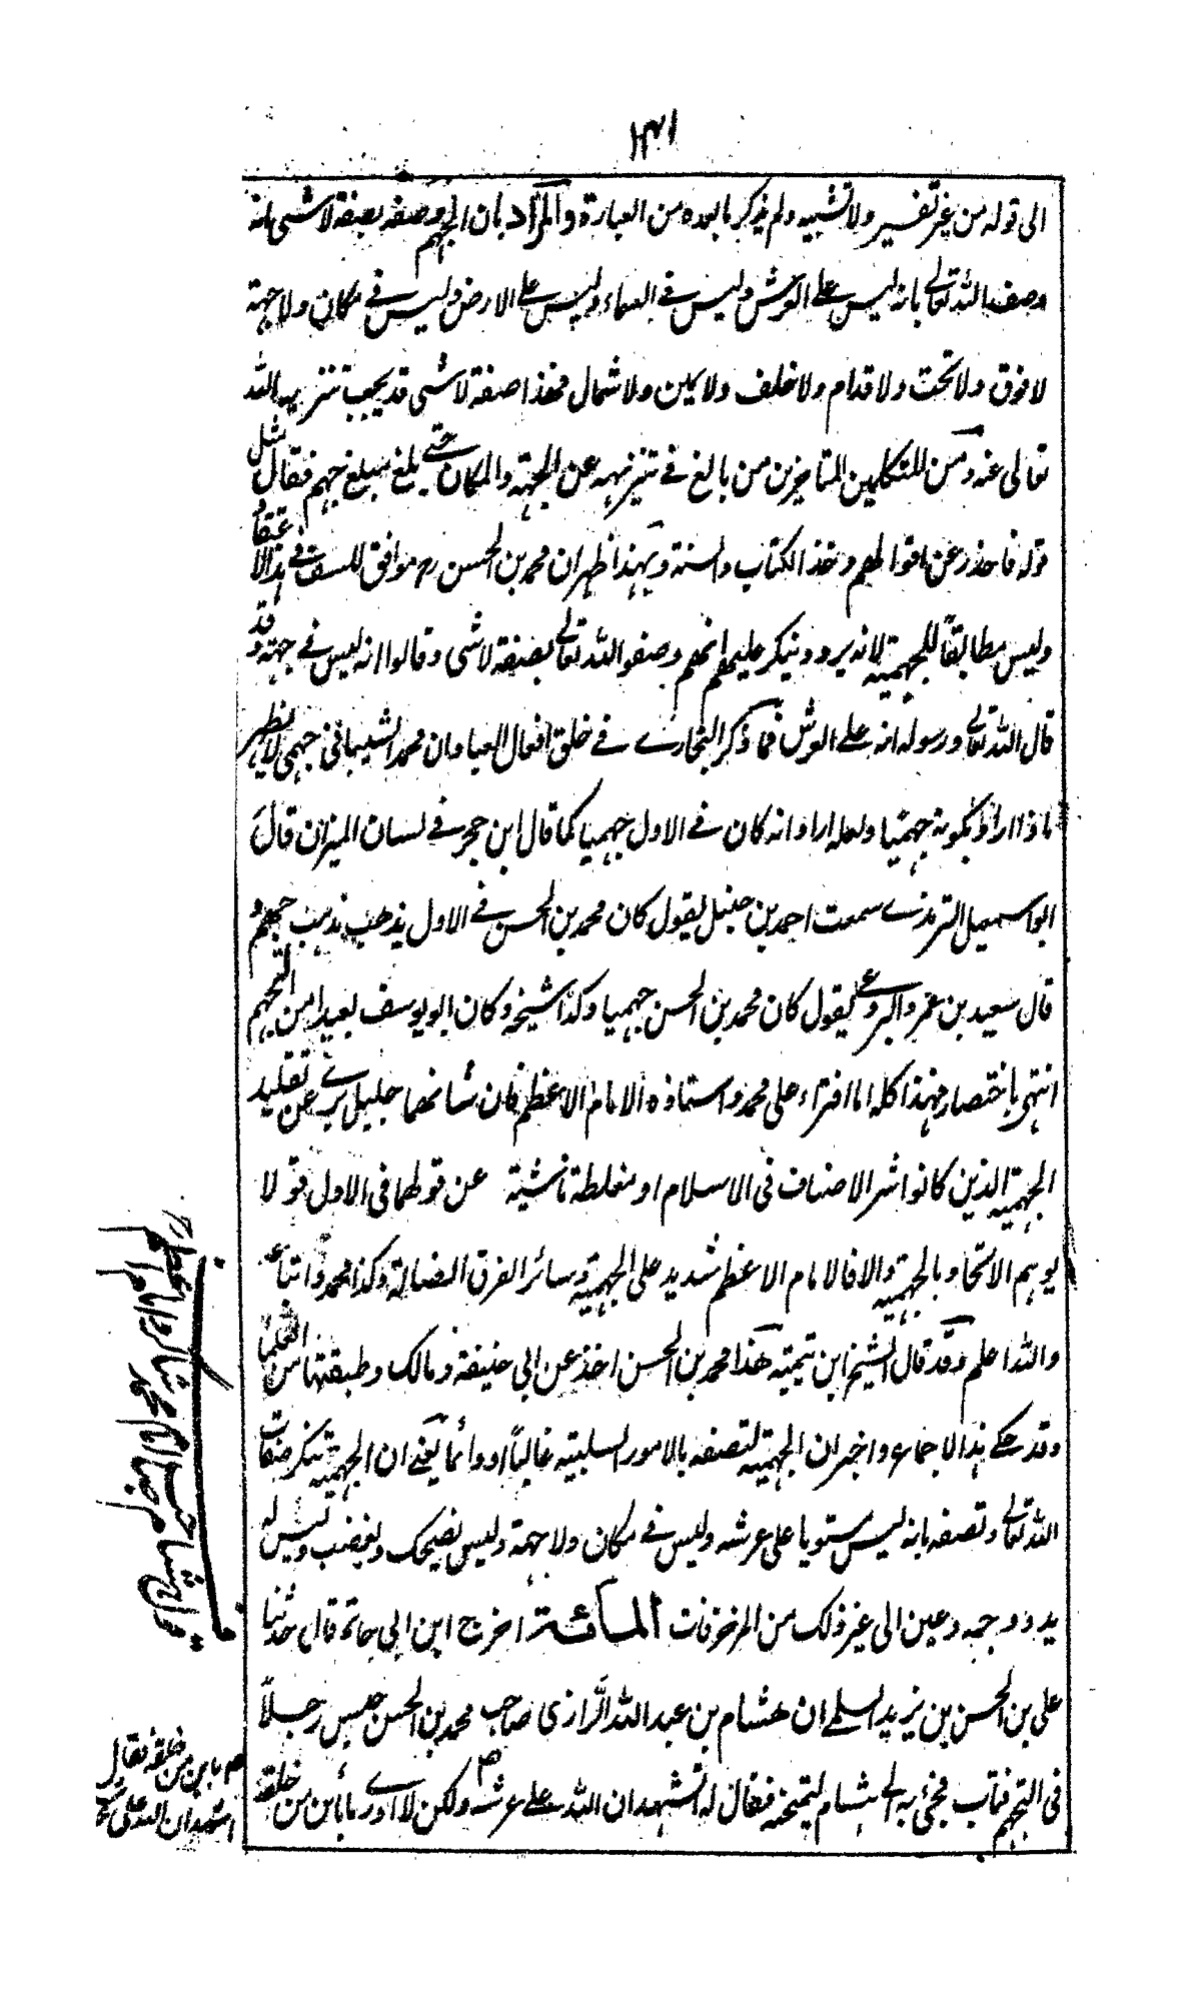 ١٣١
الى قوله من غير تفسير ولا تشبيه ولم يذكر ما بعده من العبارة والمراد بان الجهم وصفه بصفة لا شىء بانه
وصف الله تعالے بانه ليس على العرش وليس فے السماء وليس على الارض وليس فے مكان ولا جهة
لا فوق ولا تحت ولا قدام ولا خلف ولا يمين ولا شمال فهذا صفة لا شى قد يجب تنزيه الله
تعالى عنه ومن المتكلمين المتاخرين من بالغ فے تنزيهه عن الجهة والمكان حتے بلغ مبلغ جهم فقال مثل
قوله فاحذر عن اقوالهم وخذ الكتاب والسنة وبهذا ظهر ان محمد بن الحسن رح موافق للسلف فے هذا الاعتقاد
وليس مطابقاً للجهمية لانه يرد وينكر عليهم انهم وصفوا الله تعالے بصفة لا شى وقالوا انه ليس فے جهة وقد
قال الله تعالے ورسوله انه على العرش فما ذكر البخارے فے خلق افعال العباد ان محمد الشيبانى جهمى لا يظهر
ماذا اراد بكونه جهميًا ولعله اراد انه كان فے الاول جهميا كما قال ابن حجر فے لسان الميزان قال
ابو اسمعيل الترمذے سمعت احمد بن حنبل يقول كان محمد بن الحسن فے الاول يذهب مذهب جهم و
قال سعيد بن عمرو البروعے يقول كان محمد بن الحسن جهميا وكذا شيخه وكان ابو يوسف بعيدا من التجهم
انتهى باختصار فهذا كله اما افتراء على محمد واستاذه الامام الاعظم فان شانهما جليل برے عن تقليد
الجهمية الذين كانوا شر الاصناف فى الاسلام او مغلطة ناشية عن قولهما فى الاول قولا
يوهم الاتحاد بالجهمية والا فالامام الاعظم شديد على الجهمية وسائر الفرق الضالة وكذا محمد واتباعه
والله اعلم وقد قال الشيخ ابن تيمية هذا محمد بن الحسن اخذ عن ابى حنيفة ومالك وطبقتهما من العلماء
وقد حكے هذا الاجماع واخبر ان الجهمية تصفه بالامور السلبية غالباً او دائما يعنے ان الجهمية تنكر صفات
الله تعالے وتصفه بانه ليس مستويا على عرشه وليس فے مكان ولا جهة وليس يضحك ويغضب وليس له
يد ووجه وعين الى غير ذلك من المزخرفات المائة اخرج ابن ابى حاتم قال حدثنا
على بن الحسن بن يزيد السلمے ان هشام بن عبد الله الرازى صاحب محمد بن الحسن حبس رجلاً
فى التجهم فتاب فجئ به الى هشام ليمتحنه فقال له اتشهد ان الله على عرشه ولكن لا ادرے ما بائن من خلقه
م بائن من خلقه فقال
اشهد ان الله على عرشه